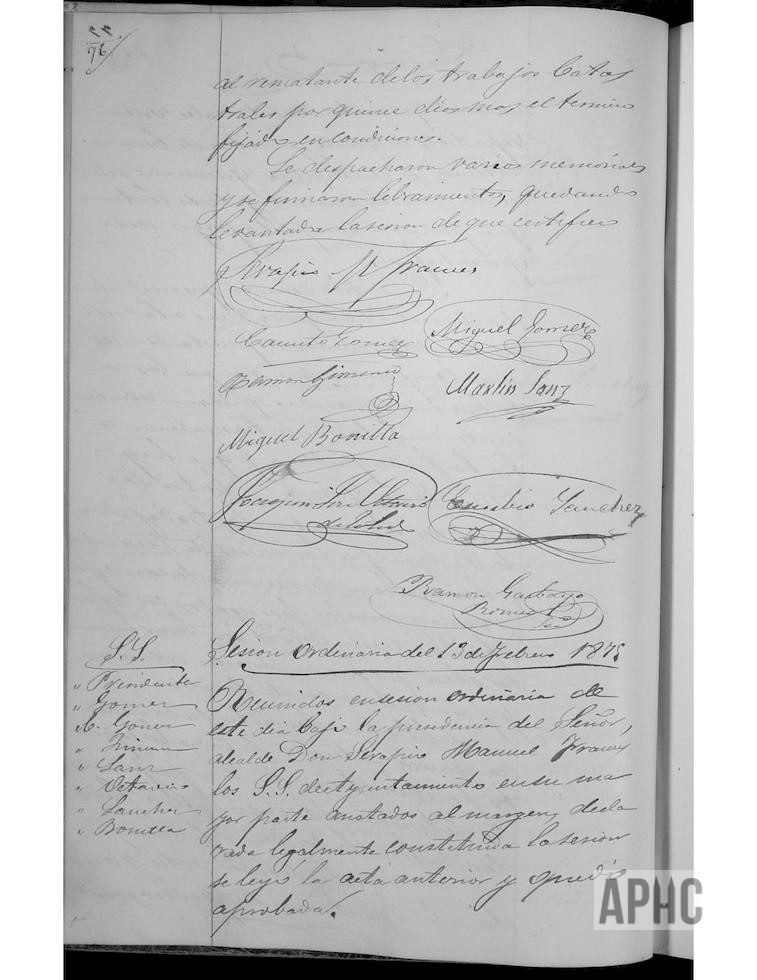 al rematante de los trabajos Catas
trales por quince dias mas el termino
fijado en condiciones.
Se despacharon varios memoriales
y se firmaron libramientos, quedando
levantada la sesion de que certifico
Serapio M Frances
Canuto Gomez
Miguel Gomez
Ramon Gimeno
Martin Sanz
Miguel Bonilla
Joaquin
Eusebio Sanchez
Ramon Garbayo
S.S.
Sesion ordinaria del 13 de Febrero 1875
" Presidente
" Gomez
" C. Gomez
" Sanz
" Octavio
" Sanchez
" Bonilla
Reunidos en sesion ordinaria de
este dia bajo la presidencia del Señor,
alcalde Don Serapio Manuel Frances
los S.S. de Ayuntamiento en su ma
yor parte anotados al margen, decla
rada legalmente constituida la sesion
se leyó la acta anterior y quedó
aprobada.
APHC